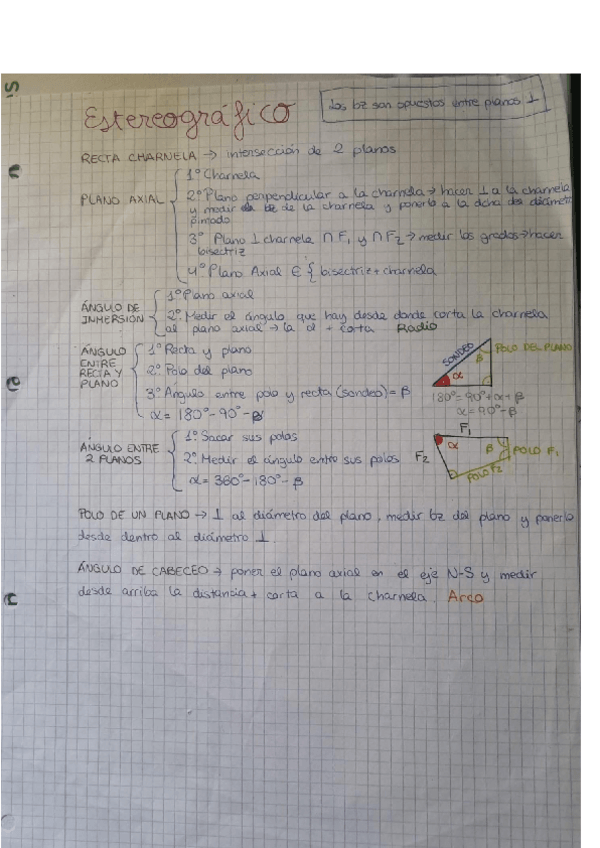 Estereográfico
los bz son opuestos entre planos ⊥
RECTA CHARNELA → intersección de 2 planos
PLANO AXIAL
1º Charnela
2º Plano perpendicular a la charnela → hacer ⊥ a la charnela
y medir bz de la charnela y ponerlo a la dcha del diámetro
3º Plano ⊥ charnela ∩ F1 y ∩ F2 → medir los grados → hacer
bisectriz
4º Plano Axial ∈ { bisectriz + charnela
ÁNGULO DE INMERSIÓN
1º Plano axial
2º Medir el ángulo que hay desde donde corta la charnela
al plano axial → la d + corta Radio
ÁNGULO ENTRE RECTA Y PLANO
1º Recta y plano
2º Polo del plano
3º Ángulo entre polo y recta (sondeo) = β
α = 180º - 90º - β
SONDEO
POLO DEL PLANO
α
β
180º = 90º + α + β
α = 90º - β
ÁNGULO ENTRE 2 PLANOS
1º Sacar sus polos
2º Medir el ángulo entre sus polos
α = 360º - 180º - β
F1
F2
α
β
POLO F1
POLO F2
POLO DE UN PLANO → ⊥ al diámetro del plano, medir bz del plano y ponerlo
desde dentro al diámetro ⊥
ÁNGULO DE CABECEO → poner el plano axial en el eje N-S y medir
desde arriba la distancia + corta a la charnela. Arco